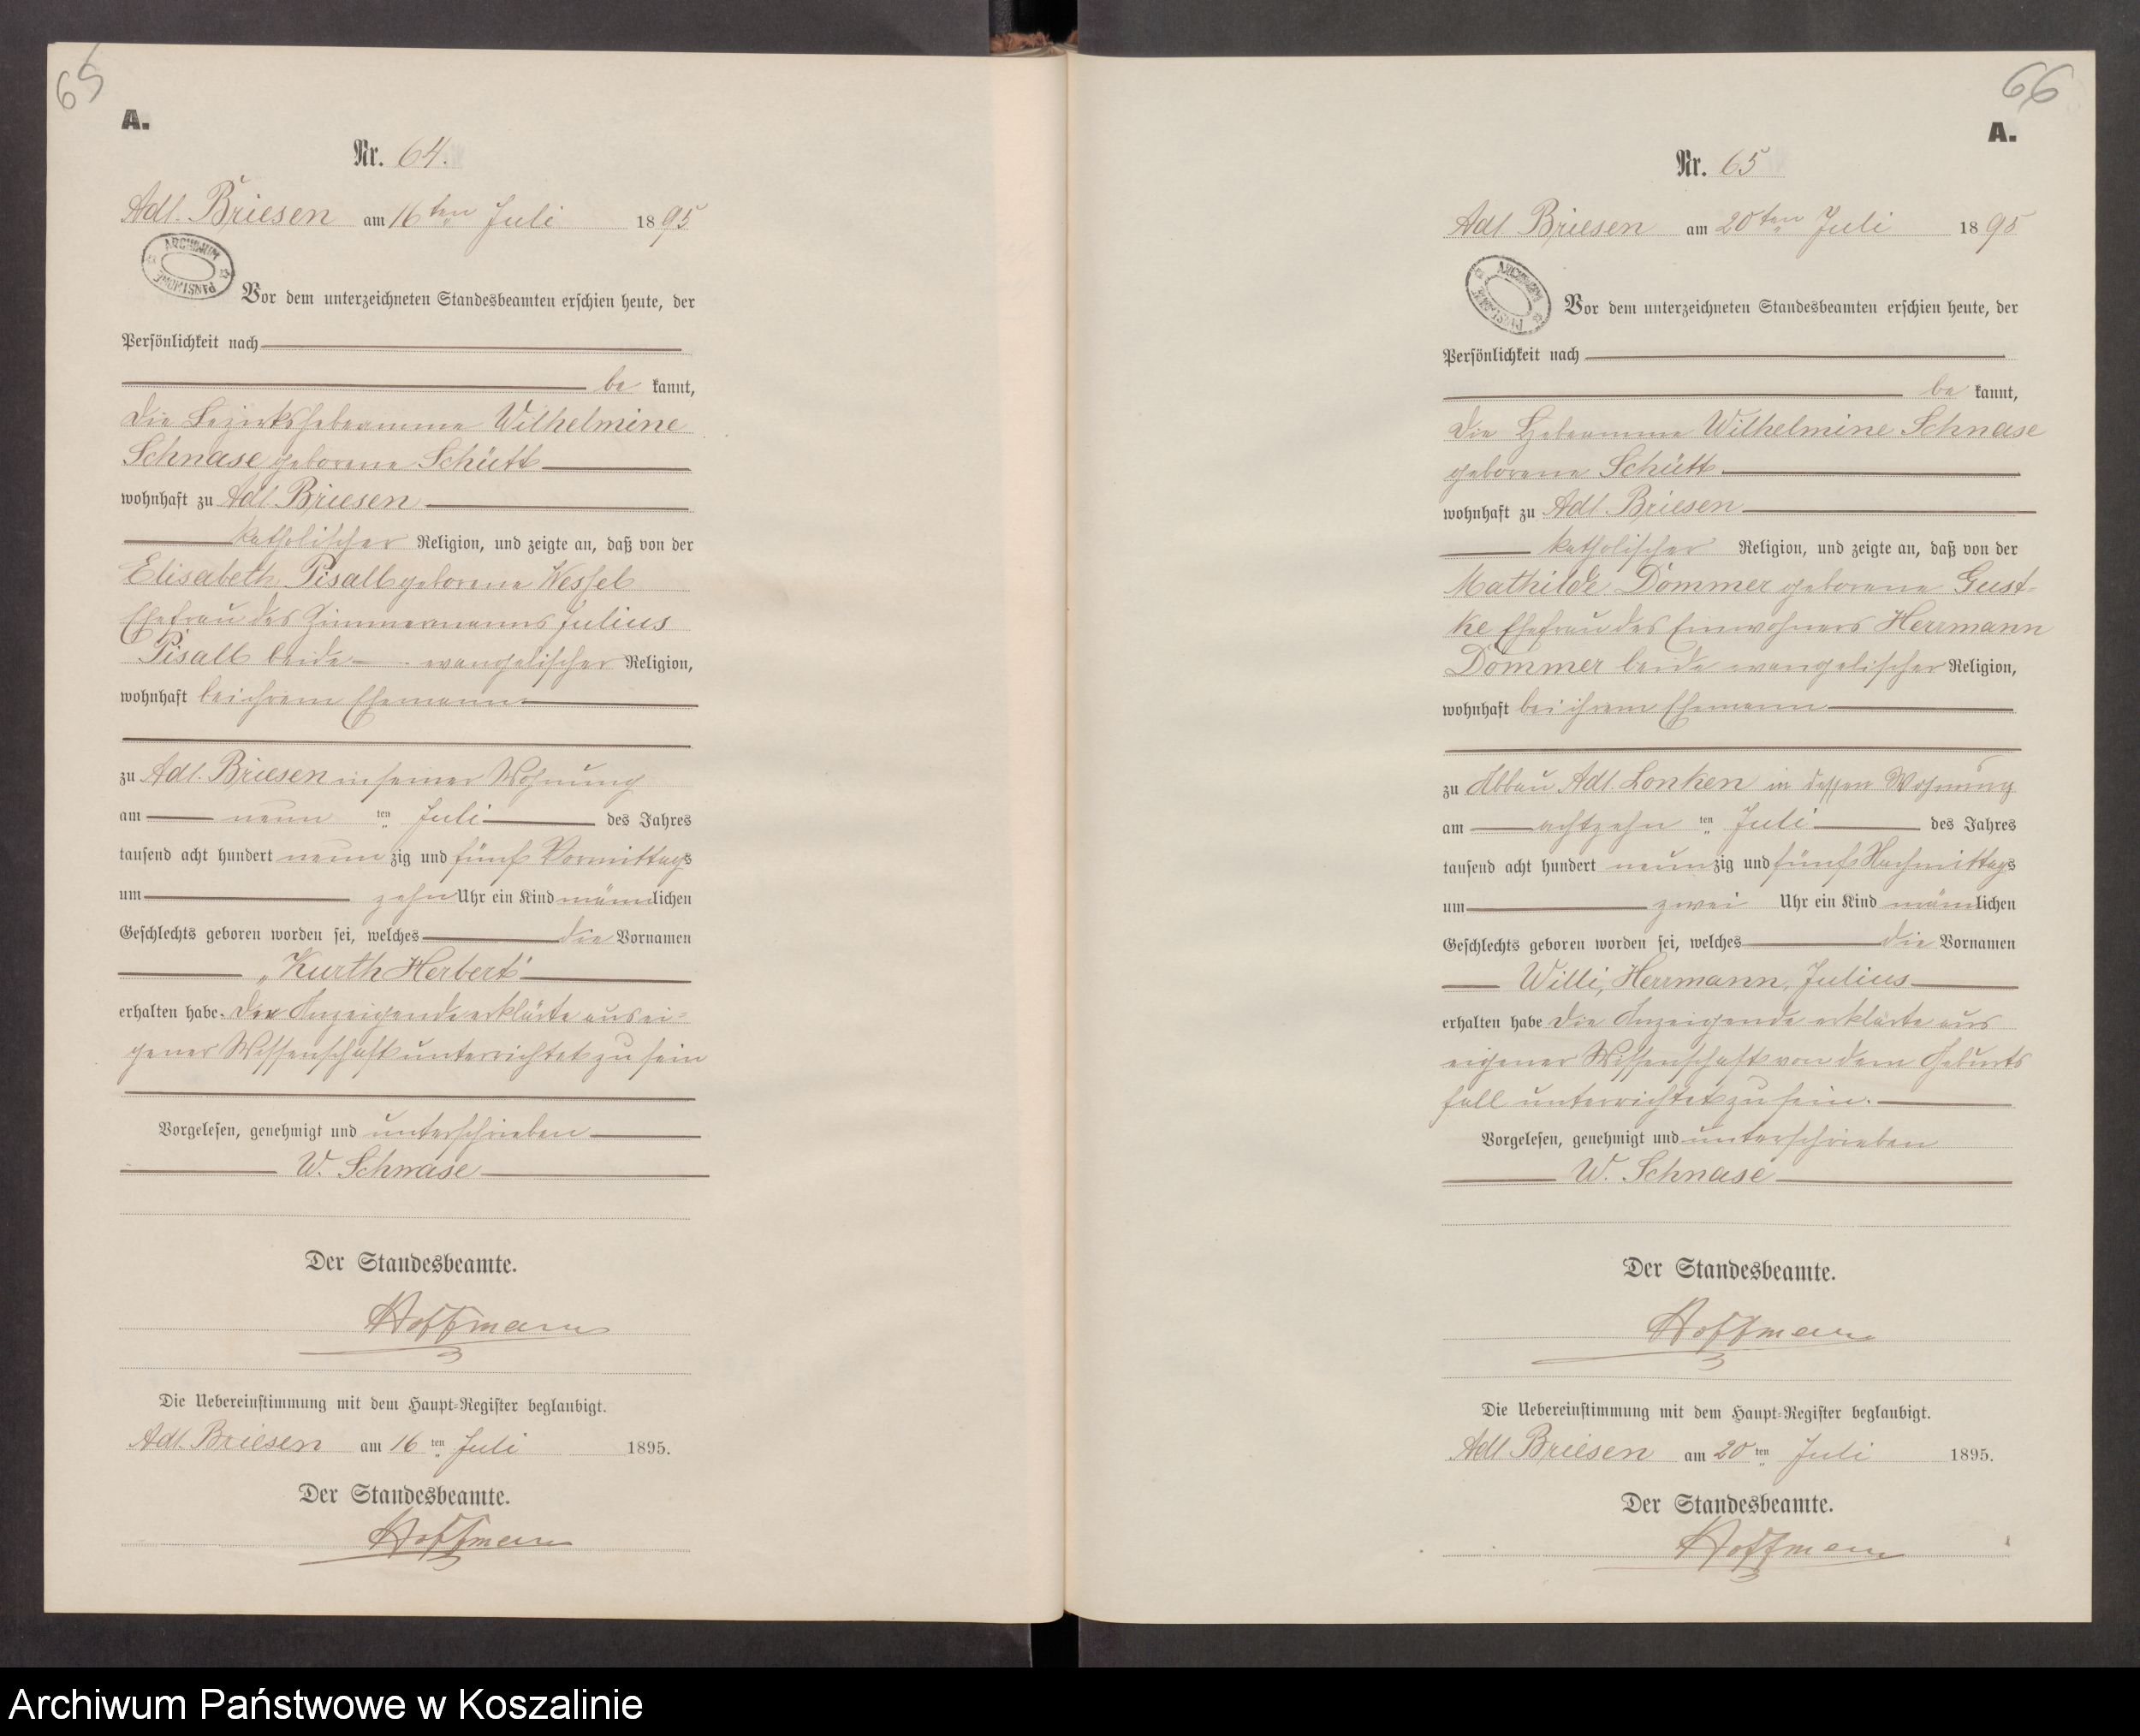 65
A.
Nr. 64.
Adl. Briesen am 16 ten Juli 1895
ARCHIWUM PAŃSTWOWE
Vor dem unterzeichneten Standesbeamten erschien heute, der
Persönlichkeit nach
be kannt,
die Bezirkshebeamme Wilhelmine
Schnase geborene Schütt
wohnhaft zu Adl. Briesen
katholischer Religion, und zeigte an, daß von der
Elisabeth Pisall geborene Wessel
Ehefrau des Zimmermanns Julius
Pisall beide evangelischer Religion,
wohnhaft bei ihrem Ehemann
zu Adl. Briesen in seiner Wohnung
am neun ten Juli des Jahres
tausend acht hundert neun zig und fünf Vormittags
um zehn Uhr ein Kind männlichen
Geschlechts geboren worden sei, welches die Vornamen
„Kurth Herbert“
erhalten habe. Die Anzeigende erklärte aus ei-
gener Wissenschaft unterrichtet zu sein
Vorgelesen, genehmigt und unterschrieben
W. Schnase
Der Standesbeamte.
Hoffmann
Die Uebereinstimmung mit dem Haupt-Register beglaubigt.
Adl. Briesen am 16 ten Juli 1895.
Der Standesbeamte.
Hoffmann
66
A.
Nr. 65
Adl. Briesen am 20 ten Juli 1895
ARCHIWUM PAŃSTWOWE
Vor dem unterzeichneten Standesbeamten erschien heute, der
Persönlichkeit nach
be kannt,
die Hebeamme Wilhelmine Schnase
geborene Schütt
wohnhaft zu Adl. Briesen
katholischer Religion, und zeigte an, daß von der
Mathilde Dommer geborene Gust-
ke Ehefrau des Einwohners Herrmann
Dommer beide evangelischer Religion,
wohnhaft bei ihrem Ehemann
zu Abbau Adl. Lonken in dessen Wohnung
am achtzehn ten Juli des Jahres
tausend acht hundert neunzig und fünf Nachmittags
um zwei Uhr ein Kind männlichen
Geschlechts geboren worden sei, welches die Vornamen
Willi, Herrmann, Julius
erhalten habe Die Anzeigende erklärte aus
eigener Wissenschaft von dem Geburts
fall unterrichtet zu sein.
Vorgelesen, genehmigt und unterschrieben
W. Schnase
Der Standesbeamte.
Hoffmann
Die Uebereinstimmung mit dem Haupt-Register beglaubigt.
Adl. Briesen am 20 ten Juli 1895.
Der Standesbeamte.
Hoffmann
Archiwum Państwowe w Koszalinie